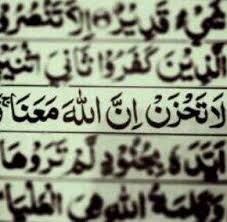 شَيْءٍ قَدِيرٌ ۝ إِلَّا تَنْصُرُو
الَّذِينَ كَفَرُوا ثَانِيَ اثْنَيْنِ
لَا تَحْزَنْ إِنَّ اللَّهَ مَعَنَا
أَيَّدَهُ بِجُنُودٍ لَّمْ تَرَوْهَا
وَكَلِمَةُ اللَّهِ هِيَ الْعُلْيَا